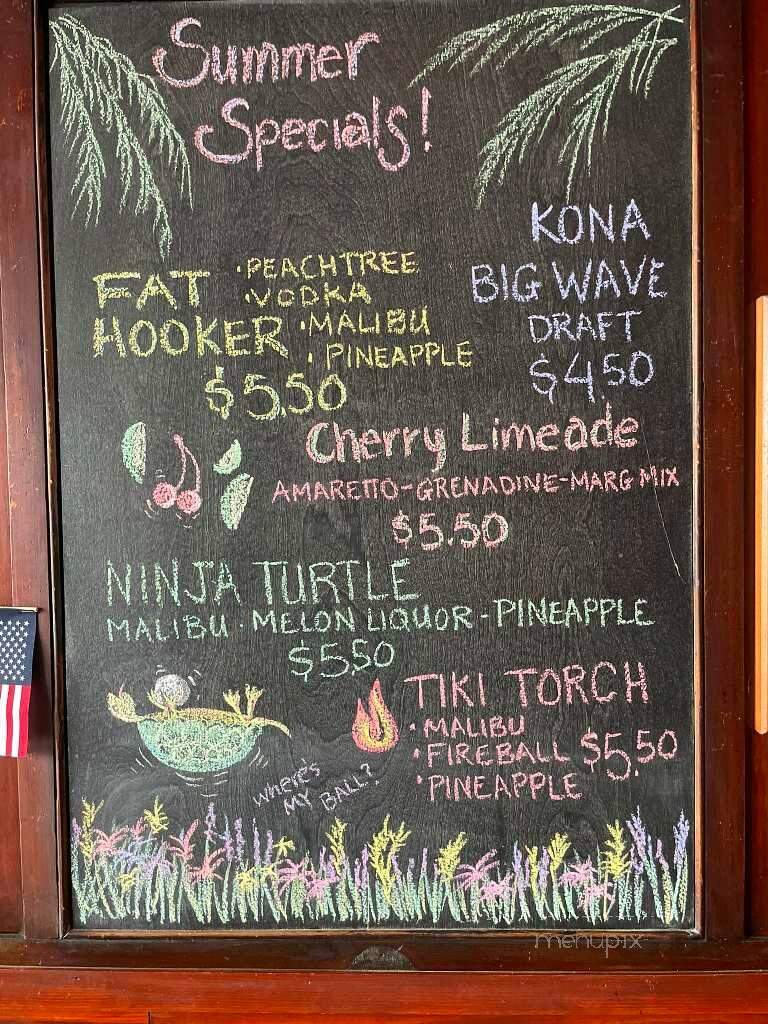 Summer
Specials!
KONA
BIG WAVE
DRAFT
$4.50
FAT
HOOKER
·PEACHTREE
·VODKA
·MALIBU
·PINEAPPLE
$5.50
Cherry Limeade
AMARETTO-GRENADINE-MARG MIX
$5.50
NINJA TURTLE
MALIBU·MELON LIQUOR-PINEAPPLE
$5.50
TIKI TORCH
·MALIBU
·FIREBALL $5.50
·PINEAPPLE
WHERE'S
MY BALL?
menupix